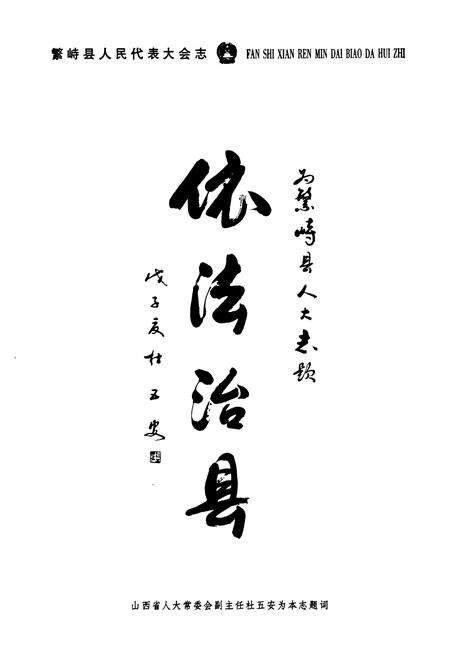 繁峙县人民代表大会志 FAN SHI XIAN REN MIN DAI BIAO DA HUI ZHI
为繁峙县人大志题
依法治县
戊子夏杜五安
山西省人大常委会副主任杜五安为本志题词